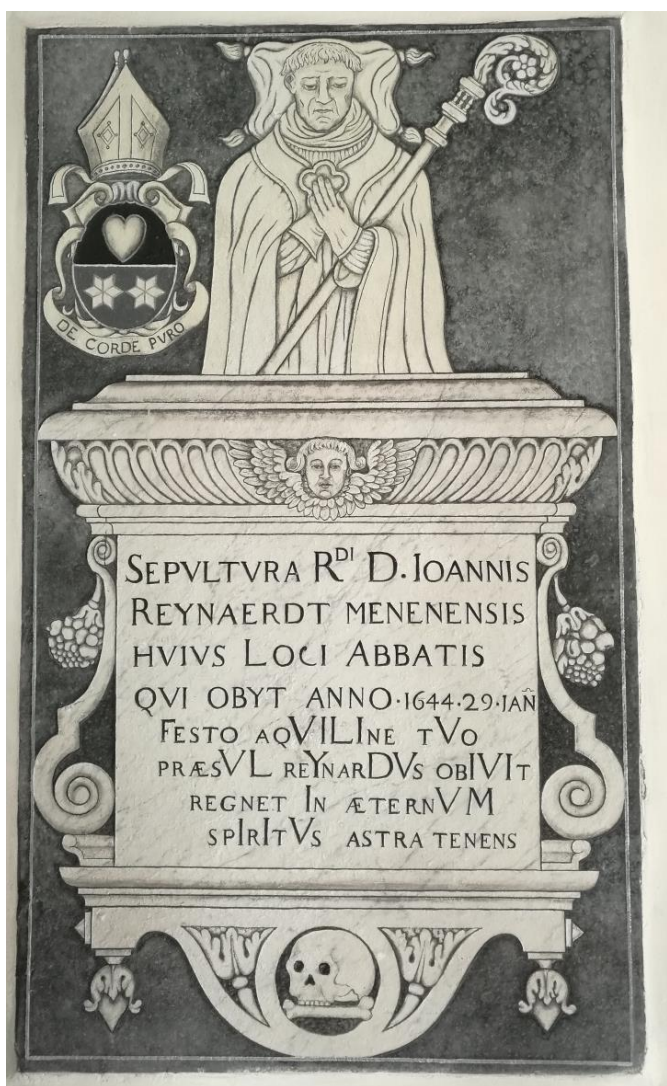 DE CORDE PVRO
SEPVLTVRA R^DI D. IOANNIS
REYNAERDT MENENENSIS
HVIVS LOCI ABBATIS
QVI OBYT ANNO·1644·29·IAÑ
FESTO AQVILINE TVO
PRÆSVL REYNARDVS OBIVIT
REGNET IN ÆTERNVM
SPIRITVS ASTRA TENENS